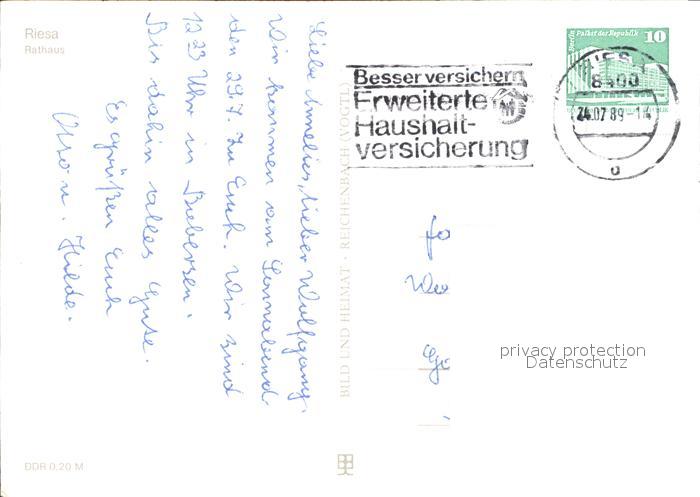 Riesa
Rathaus
Liebe Annelies, lieber Wolfgang.
Wir kommen am Sonnabend
den 29.7. zu Euch. Wir sind
12 23 Uhr in
Bis dahin alles Gute.
Es grüßen Euch
Otto u. Hilde.
DDR 0,20 M
BILD UND HEIMAT · REICHENBACH (VOGTL)
Besser versichern
Erweiterte
Haushalt-
versicherung
Berlin Palast der Republik
10
8400
24.07.89-14
privacy protection
Datenschutz